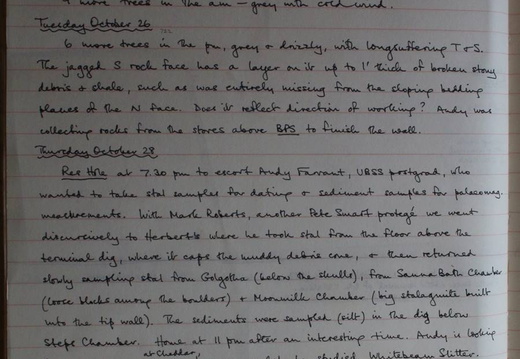 9 more trees in the a.m – grey with cold wind.
Tuesday October 26
6 more trees in the pm, grey & drizzly, with longsuffering T & S.
The jagged S rock face has a layer on it up to 1' thick of broken stony
debris & shale, such as was entirely missing from the sloping bedding
planes of the N face. Does it reflect direction of working? Andy was
collecting rocks from the stores above BPS to finish the wall.
Thursday October 28
Res Hole at 7.30 pm to escort Andy Farrant, UBSS postgrad, who
wanted to take stal samples for dating & sediment samples for palaeomag.
measurements. With Mark Roberts, another Pete Smart protegé we went
discursively to Herbert's where he took stal from the floor above the
terminal dig, where it caps the muddy debris cone, & then returned
slowly sampling stal from Golgotha (below the skulls), from Sauna Bath Chamber
(loose blocks among the boulders) & Moonmilk Chamber (big stalagmite built
into the tip wall). The sediments were sampled (silt) in the dig below
Steps Chamber. Home at 11 pm after an interesting time. Andy is looking
at Cheddar,
studied Whitebeam Slitter.